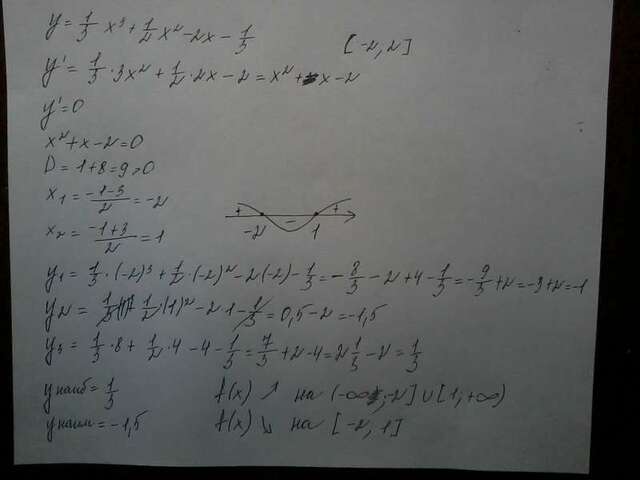 y = 1/3 x³ + 1/2 x² - 2x - 1/3 [-2, 2]
y' = 1/3 · 3x² + 1/2 · 2x - 2 = x² + x - 2
y' = 0
x² + x - 2 = 0
D = 1 + 8 = 9 > 0
x₁ = (-1-3)/2 = -2
+ - +
-2 1
x₂ = (-1+3)/2 = 1
y₁ = 1/3 · (-2)³ + 1/2 · (-2)² - 2(-2) - 1/3 = -8/3 - 2 + 4 - 1/3 = -9/3 + 2 = -3 + 2 = -1
y₂ = 1/3 (1)³ + 1/2 · (1)² - 2 · 1 - 1/3 = 0,5 - 2 = -1,5
y₃ = 1/3 · 8 + 1/2 · 4 - 4 - 1/3 = 7/3 + 2 - 4 = 2 1/3 - 2 = 1/3
y наиб = 1/3 f(x) ↗ на (-∞; -2] ∪ [1; +∞)
y наим = -1,5 f(x) ↘ на [-2, 1]